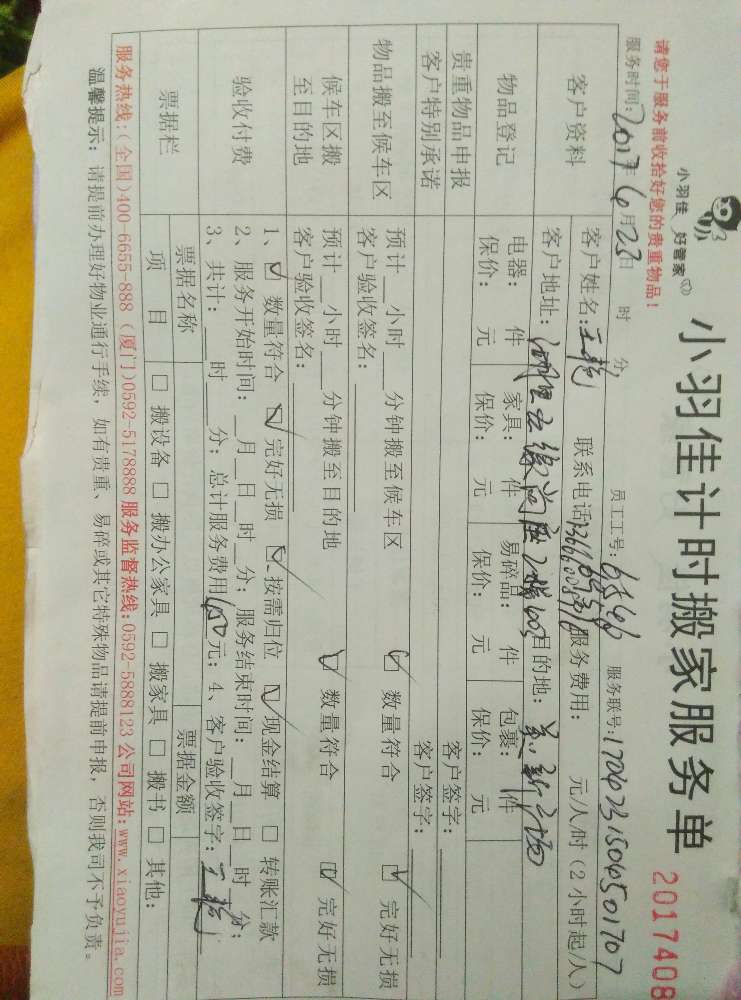 小羽佳 好管家
小羽佳计时搬家服务单 2017408
请您于服务前收拾好您的贵重物品！
服务时间：2017年6月23日 时 分， 员工工号：6546 服务联号：
客户资料
客户姓名： 联系电话： 服务费用： 元/人/时（2小时起/人）
客户地址： 目的地：
物品登记
电器： 件 家具： 件 易碎品： 件 包裹： 件
保价： 元 保价： 元 保价： 元 保价： 元
贵重物品申报 客户签字：
客户特别承诺 客户签字：
物品搬至候车区
预计__小时__分钟搬至候车区 数量符合 完好无损
客户验收签名：
候车区搬至目的地
预计__小时__分钟搬至目的地 数量符合 完好无损
客户验收签名：
验收付费
1、数量符合 完好无损 按需归位 现金结算 转账汇款
2、服务开始时间：__月__日__时__分；服务结束时间：__月__日__时__分；
3、共计：__时__分；总计服务费用 元；4、客户验收签字：
票据栏
票据名称 票据金额
项目 搬设备 搬办公家具 搬家具 搬书 其他：
服务热线：（全国）400-6655-888（厦门）0592-5178888 服务监督热线：0592-5888123 公司网站：www.xiaoyujia.com
温馨提示：请提前办理好物业通行手续，如有贵重、易碎或其它特殊物品请提前申报，否则我司不予负责。